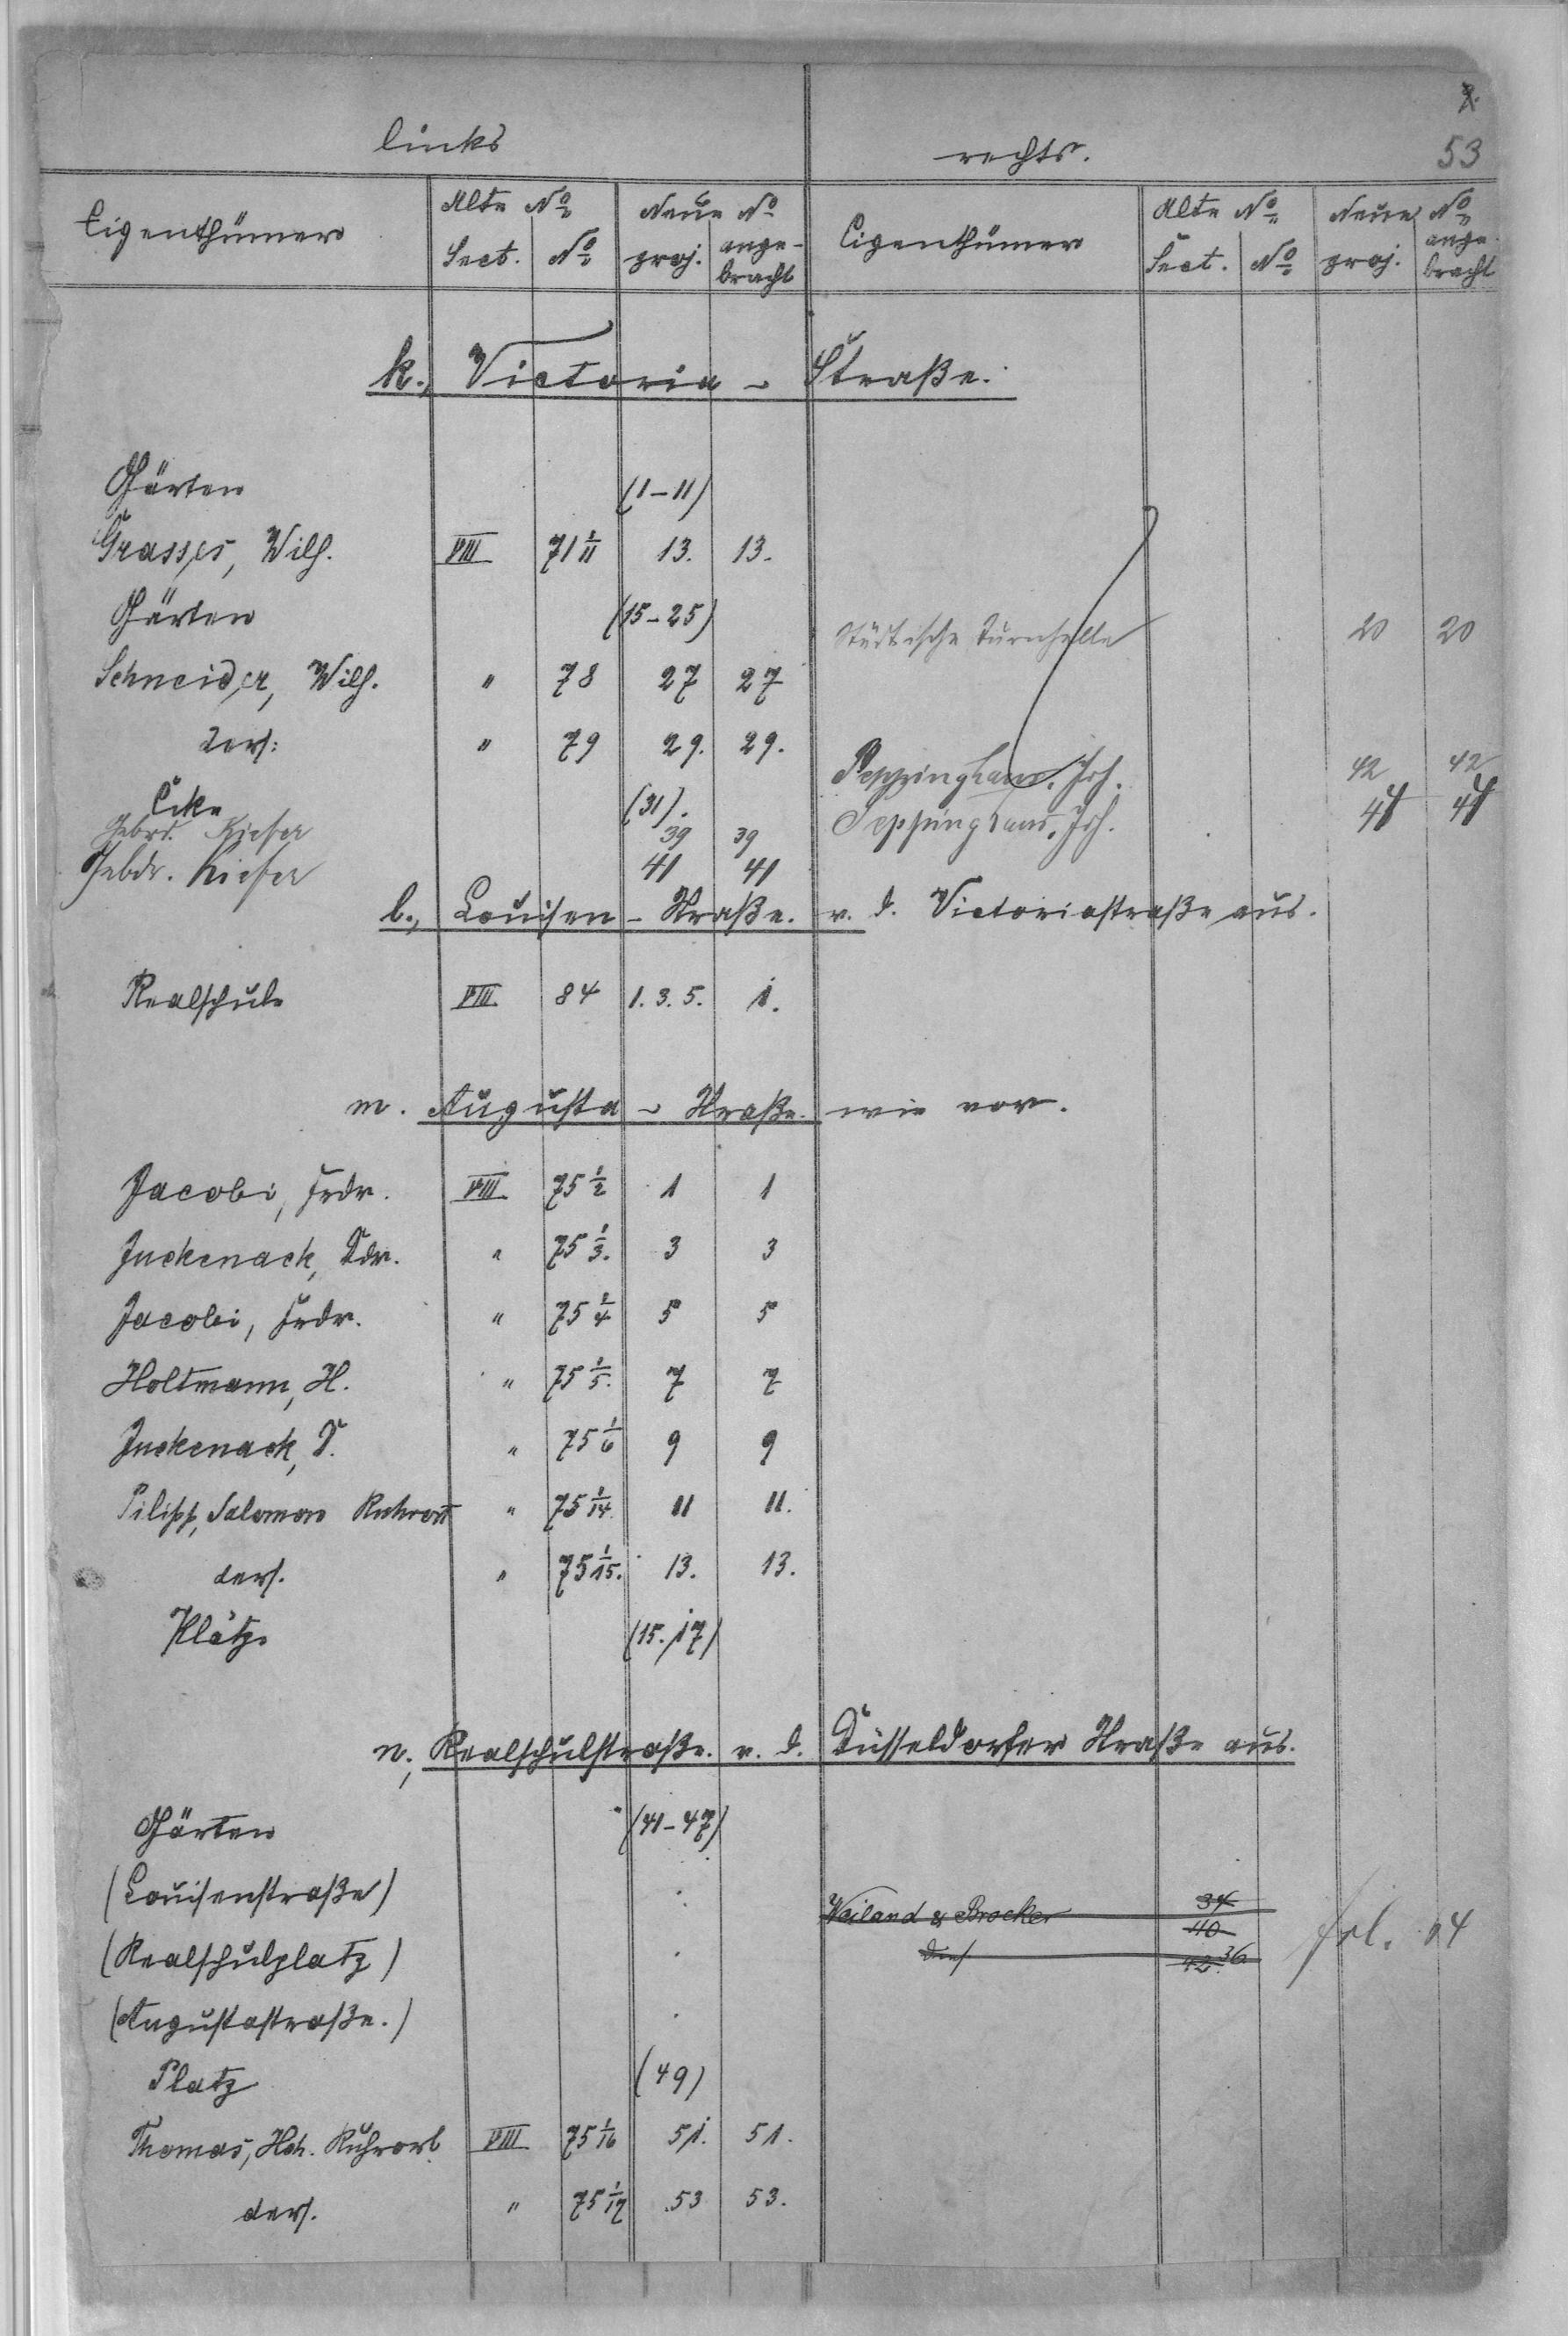 53
links
rechts.
Eigenthümer Alte No Neue No Eigenthümer Alte No Neue No
Sect. No proj. ange-bracht Sect. No proj. ange-bracht
k., Victoria - Straße.
Gärten (1-11)
Grasses, Wilh. VIII 71 1/11 13. 13.
Gärten (15-25)
Städtische Turnhalle 20 20
Schneider, Wilh. " 78 27 27
ders: " 79 29. 29.
Peppinghaus, Joh. 42 42
Ecke (31).
Gebrd. Kiefer 39 39
Peppinghaus, Joh.
Gebdr. Kiefer 41 41
l., Louisen - Straße. v. d. Victoriastraße aus.
Realschule VIII 84 1. 3. 5. 1.
m. Augusta - Straße. wie vor.
Jacobi, Frdr. VIII 75 1/2 1 1
Juckenack, Ddr. " 75 1/3. 3 3
Jacobi, Frdr. " 75 1/4 5 5
Holtmann, H. " 75 1/5. 7 7
Juckenack, D. " 75 1/6 9 9
Pilipp, Salomon Ruhrort " 75 1/14. 11 11.
ders. " 75 1/15. 13. 13.
Plätze (15. 17)
n., Realschulstraße. v. d. Düsseldorfer Straße aus.
Gärten (41-47)
(Louisenstraße)
Weiland & Brocker 34
40
(Realschulplatz)
dies. 42. 36
fol. 04
(Augustastraße.)
Platz (49)
Thomas, Hch. Ruhrort VIII 75 1/16 51. 51.
ders. " 75 1/17 53 53.